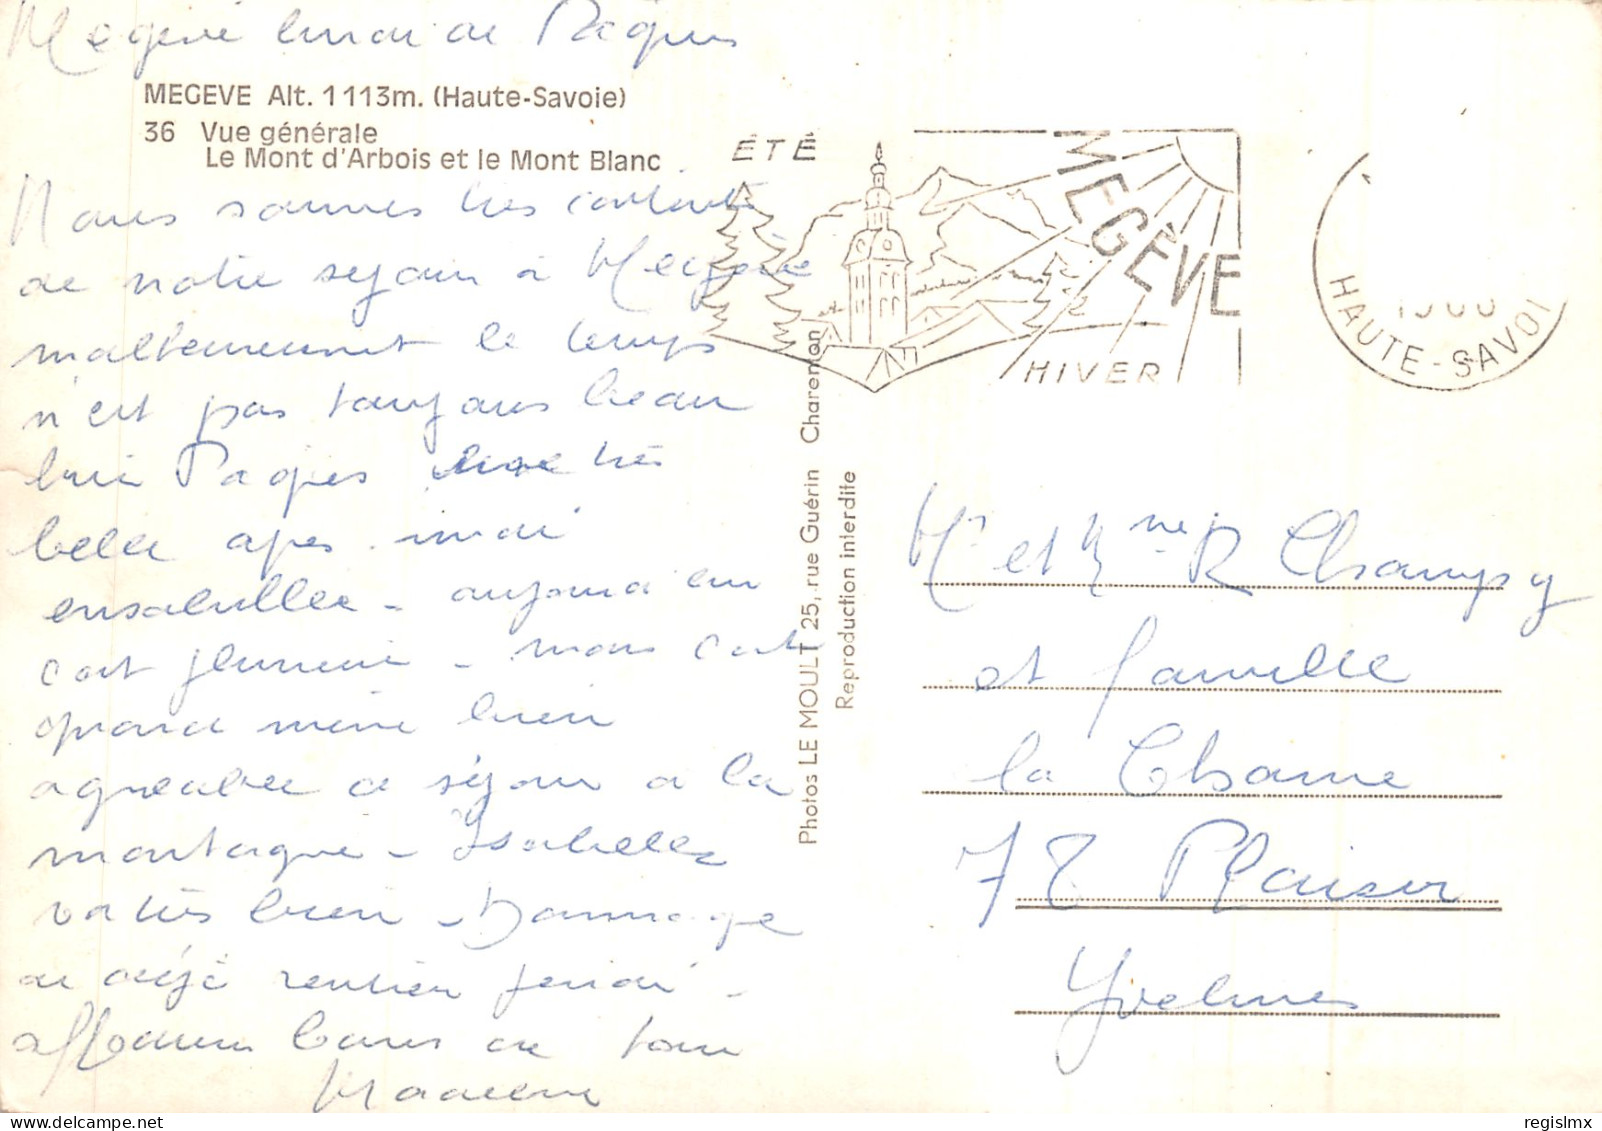 Megève lundi de Pâques
MEGEVE Alt. 1113m. (Haute-Savoie)
36 Vue générale
Le Mont d'Arbois et le Mont Blanc
Nous sommes très contents
de notre séjour à Megève
malheureusement le temps
n'est pas toujours beau
hier Pâques très
belle après midi
ensoleillée - aujourd'hui
c'est - mais c'est
quand même bien
agréable ce séjour à la
montagne - Isabelle
va très bien - Dommage
de déjà rentrer jeudi -
affectueux baisers de tous
Madeleine
ÉTÉ
MEGÈVE
HIVER
HAUTE-SAVOI
Photos LE MOULT 25, rue Guérin Charenton
Reproduction interdite
Mr et Mme R Champy
et famille
la Chaine
78 Plaisir
Yvelines
regislmx